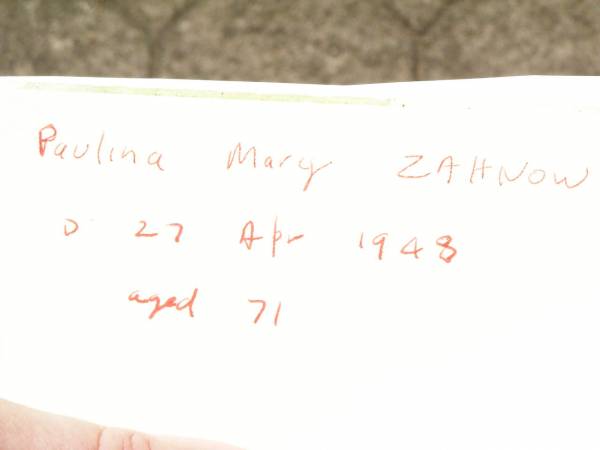 Paulina Mary ZAHNOW
D 27 Apr 1948
aged 71